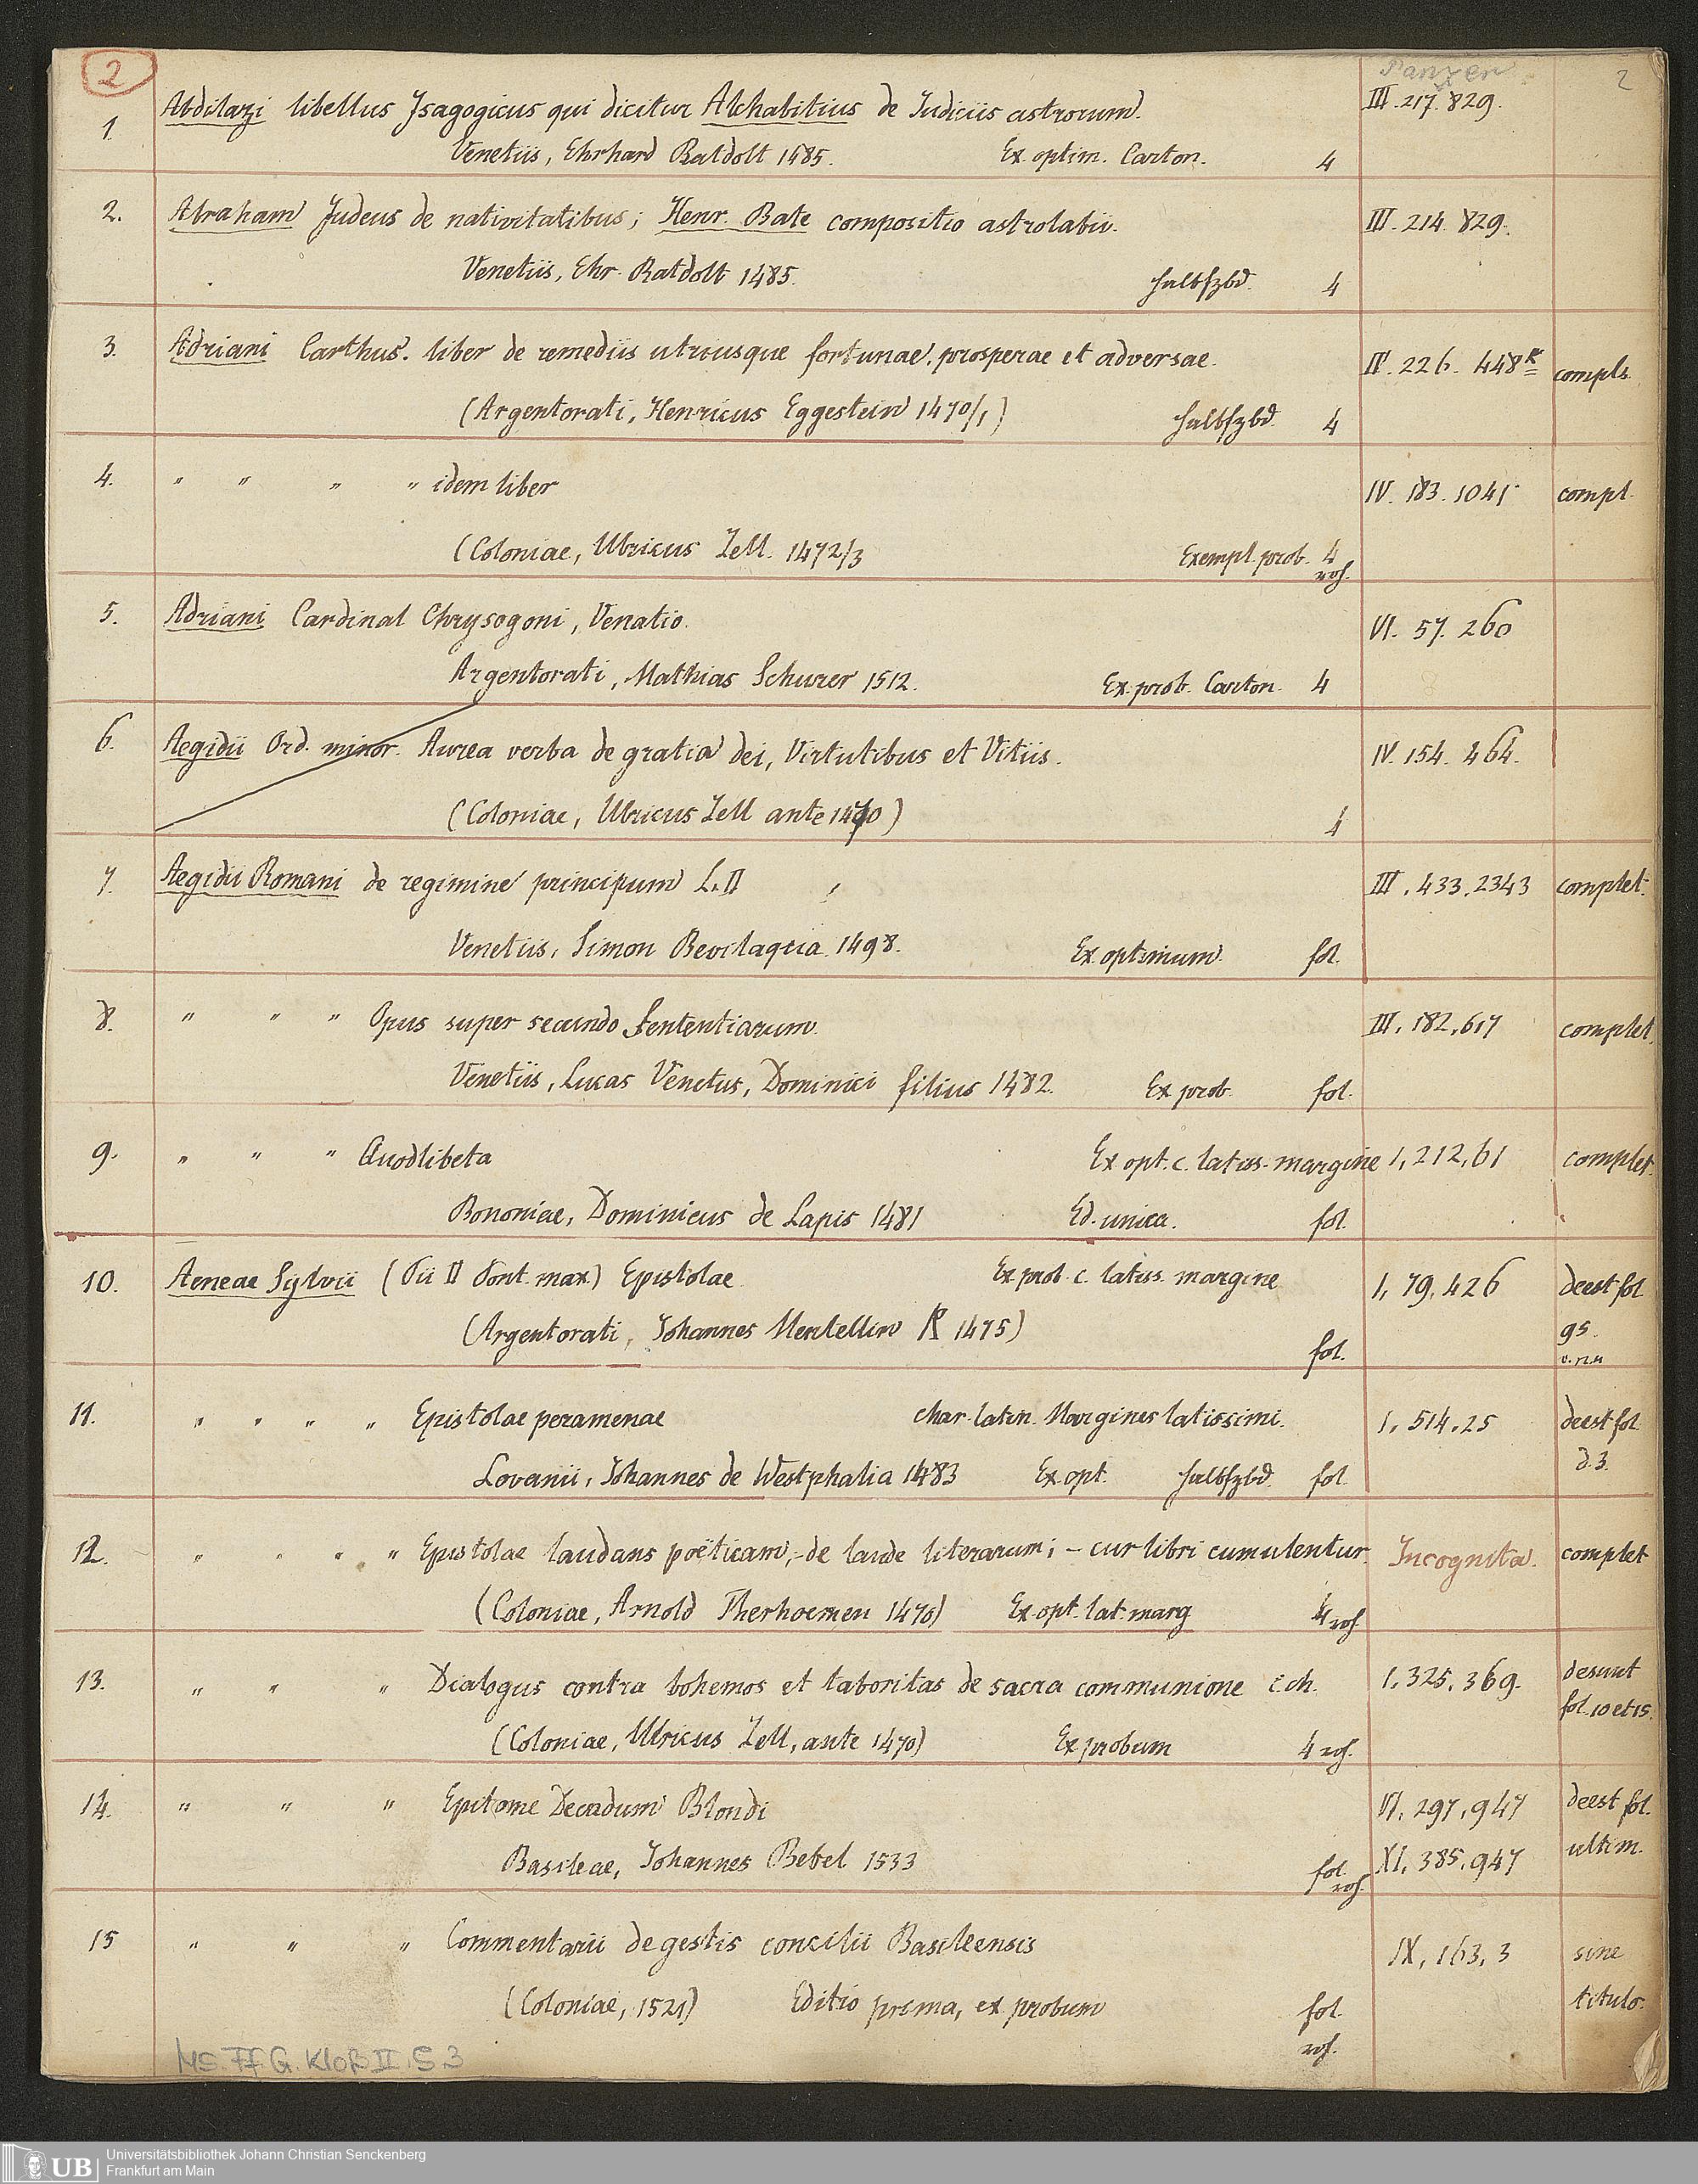 2
Panzer
2
1. Abdilazi libellus Ysagogicus qui dicitur Alchabitius de Judiciis astrorum. III. 217. 829.
Venetiis, Ehrhard Ratdolt 1485. Ex. optim. Carton. 4
2. Abraham Judeus de nativitatibus; Henr. Bate compositio astrolabii. III. 214. 829.
Venetiis, Ehr. Ratdolt 1485. Halbfzbd. 4
3. Adriani Carthus. liber de remediis utriusque fortunae, prosperae et adversae. IV. 226. 448 compl.
(Argentorati, Henricus Eggestein 1470/1) Halbfzbd. 4
4. " " " " idem liber IV. 183. 1041 compl.
(Coloniae, Ulricus Zell. 1472/3 Exempl. prob. 4
roh.
5. Adriani Cardinal Chrysogoni, Venatio. VI. 57. 260
Argentorati, Mathias Schurer 1512. Ex. prob. Carton. 4
6. Aegidii Ord. minor. Aurea verba de gratia dei, Virtutibus et Vitiis. IV. 154. 464.
(Coloniae, Ulricus Zell ante 1470) 4
7. Aegidii Romani de regimine principum L. II III. 433. 2343 complet.
Venetiis, Simon Bevilaqua. 1498. Ex. optimum. fol.
8. " " " Opus super secundo Sententiarum. III, 182, 617 complet.
Venetiis, Lucas Venetus, Dominici filius 1482. Ex prob. fol.
9. " " " Quodlibeta Ex opt. c. latiss. margine I, 212, 61 complet.
Bononiae, Dominicus de Lapis 1481 Ed. unica. fol.
10. Aeneae Sylvii (Pii II Pont. max.) Epistolae Ex prob. c. latiss. margine I, 79, 426 deest fol
(Argentorati, Johannes Mentellin R 1475) fol. 95.
11. " " " " Epistolae peramenae char. latin. Margines latissimi. I, 514, 25 deest fol.
Lovanii, Johannes de Westphalia 1483 Ex. opt. Halbfzbd. fol. d. 3.
12. " " " " Epistolae laudans poëticam; - de laude literarum; - cur libri cumulentur. Incognita. complet
(Coloniae, Arnold Therhoernen 1470) Ex. opt. lat. marg 4 roh.
13. " " " Dialogus contra bohemos et taboritas de sacra communione c. ch. I, 325, 369. desunt
(Coloniae, Ulricus Zell, ante 1470) Ex probum 4 roh. fol. 10 et 15.
14. " " " Epitome Decadum Blondi VI, 297, 947 deest fol.
Basileae, Johannes Bebel 1533 fol. XI, 385, 947 ultim.
roh.
15 " " " Commentarii de gestis concilii Basileensis IX, 163, 3 sine
(Coloniae, 1521) Editio prima, ex. probum fol. titulo.
roh.
MS. Ff. G. Kloß II. S. 3
UB Universitätsbibliothek Johann Christian Senckenberg
Frankfurt am Main